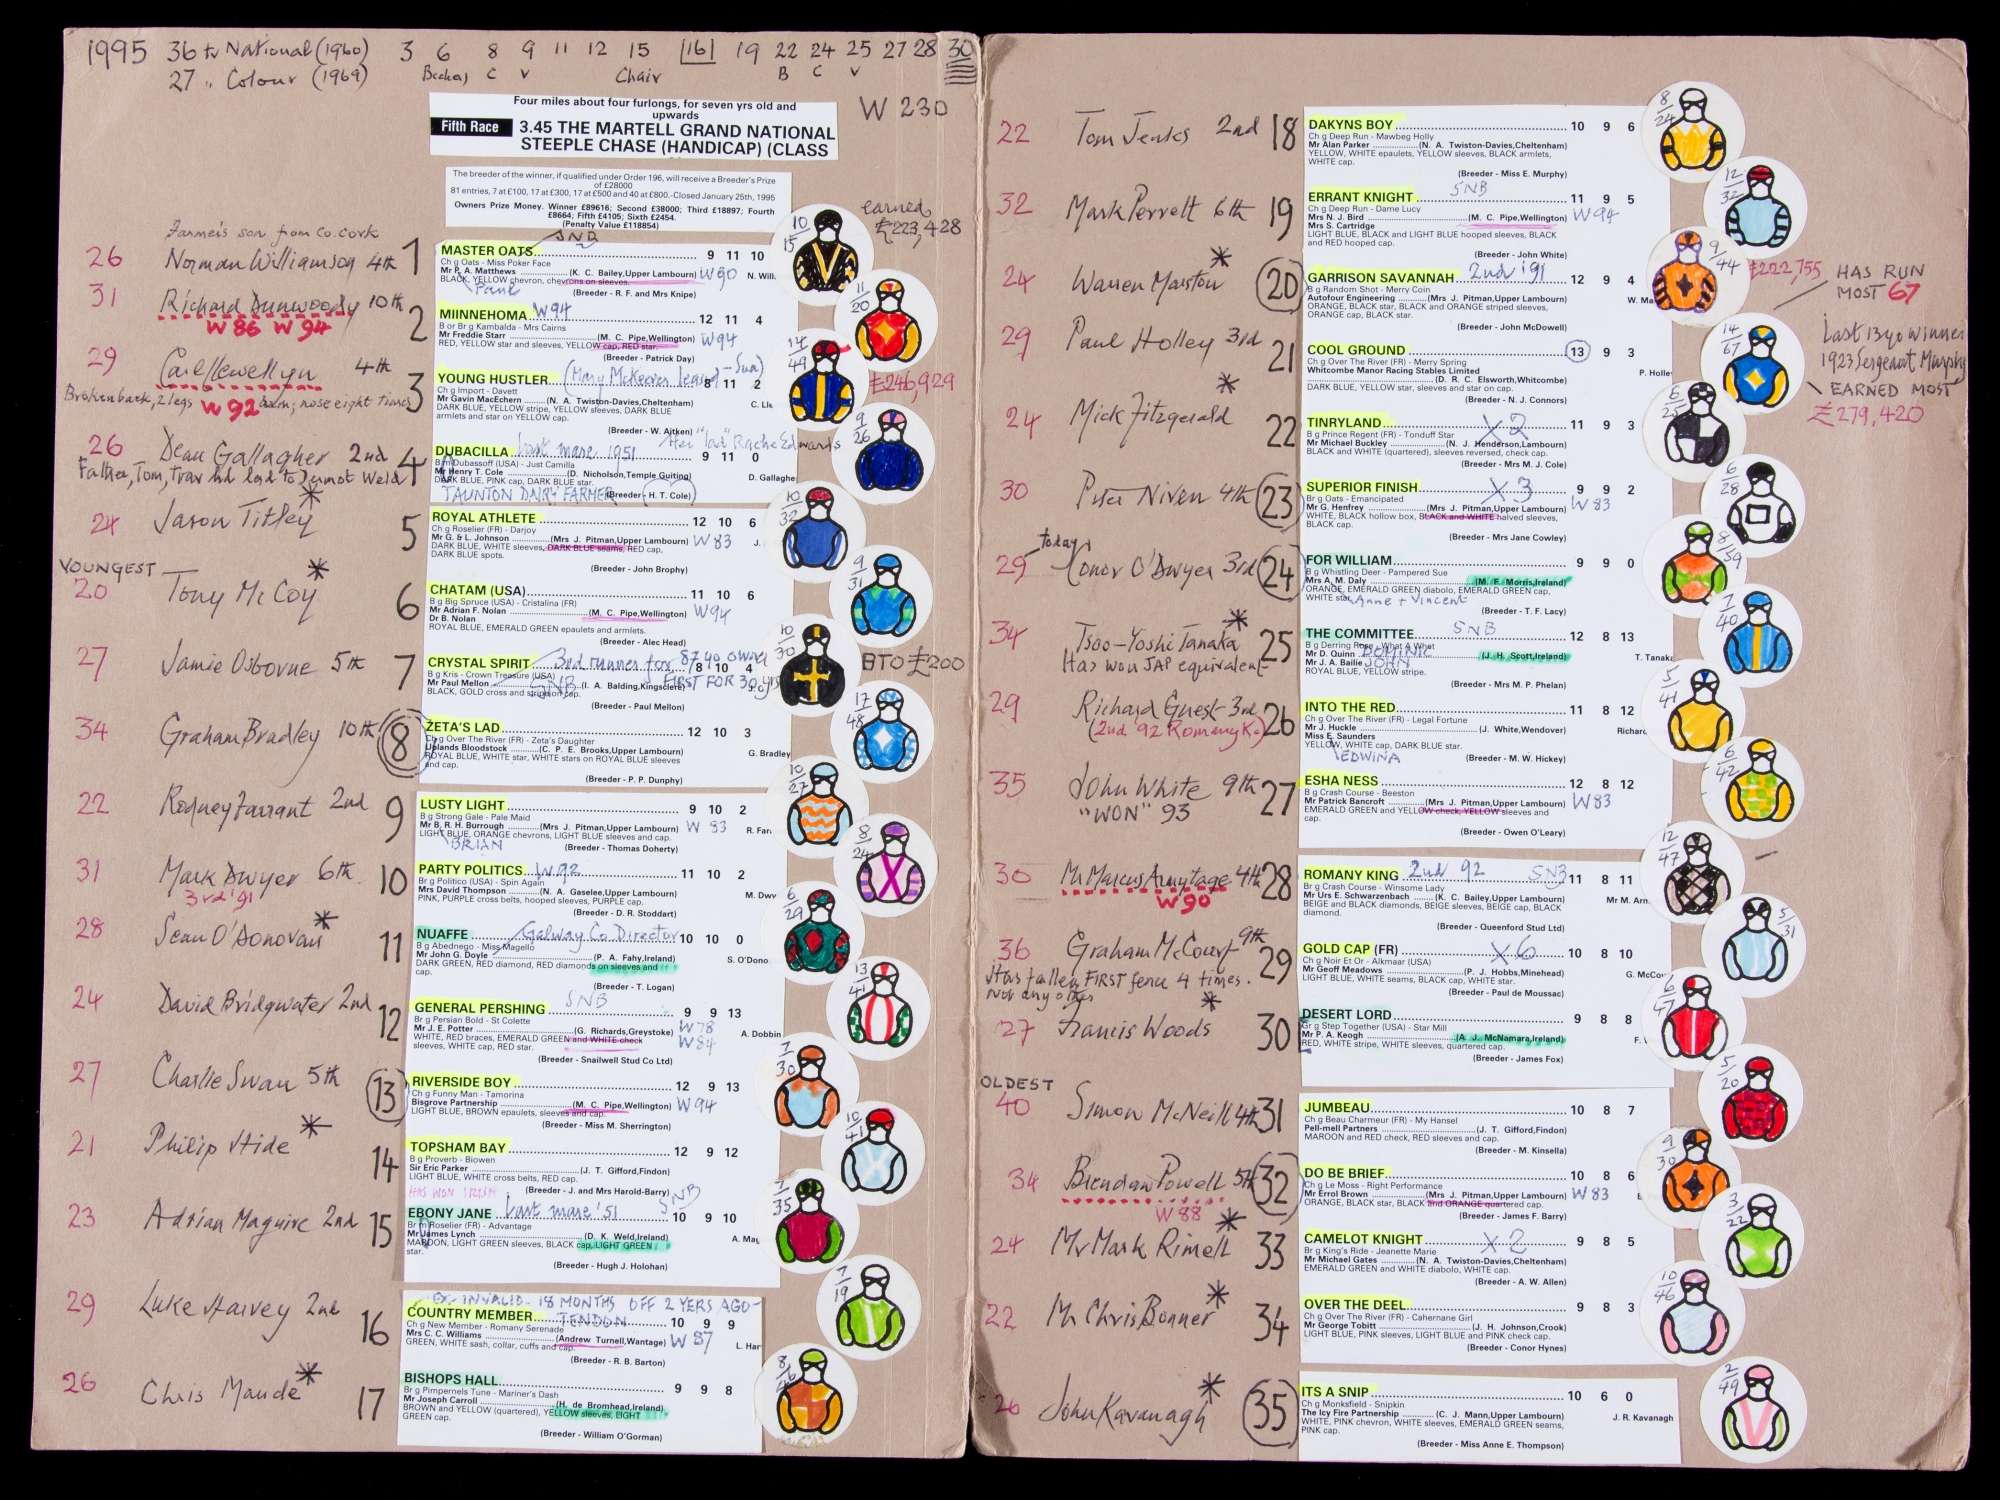 1995 36th National (1960) 3 6 8 9 11 12 15 16 19 22 24 25 27 28 30
27 " Colour (1969) Bechers C V Chair B C V
Four miles about four furlongs, for seven yrs old and
upwards
W 230
Fifth Race 3.45 THE MARTELL GRAND NATIONAL
STEEPLE CHASE (HANDICAP) (CLASS
The breeder of the winner, if qualified under Order 196, will receive a Breeder's Prize
of £28000
81 entries, 7 at £100, 17 at £300, 17 at £500 and 40 at £800.-Closed January 25th, 1995
Owners Prize Money. Winner £89616; Second £38000; Third £18897; Fourth
£8664; Fifth £4105; Sixth £2454.
(Penalty Value £118854)
Farmer's son from Co. Cork
26 Norman Williamson 4th 1
SNB
MASTER OATS 9 11 10
Ch g Oats - Miss Poker Face
Mr P. A. Matthews (K. C. Bailey,Upper Lambourn) W90 N. Will.
BLACK, YELLOW chevron, chevrons on sleeves.
Paul
(Breeder - R. F. and Mrs Knipe)
10/15
earned
£223,428
31 Richard Dunwoody 10th 2
W86 W94
MIINNEHOMA W94 12 11 4
B or Br g Kambalda - Mrs Cairns
Mr Freddie Starr (M. C. Pipe,Wellington) W94
RED, YELLOW star and sleeves, YELLOW cap, RED star.
(Breeder - Patrick Day)
11/20
29 Carl Llewellyn 4th 3
Broken back, 2 legs W92 arm; nose eight times
YOUNG HUSTLER 8 11 2
Ch g Import - Davett
Mr Gavin MacEchern (N. A. Twiston-Davies,Cheltenham) C. Lle
DARK BLUE, YELLOW stripe, YELLOW sleeves, DARK BLUE
armlets and star on YELLOW cap.
(Breeder - W. Aitken)
14/49
£246,929
26 Dean Gallagher 2nd 4
Father, Tom, trav hd lad to Dermot Weld
DUBACILLA Last mare 1951 Her "lad" Rache Edwards 9 11 0
B m Dubassoff (USA) - Just Camilla
Mr Henry T. Cole (D. Nicholson,Temple Guiting) D. Gallaghe
DARK BLUE, PINK cap, DARK BLUE star.
TAUNTON DAIRY FARMER (Breeder - H. T. Cole)
9/26
24 Jason Titley * 5
ROYAL ATHLETE 12 10 6
Ch g Roselier (FR) - Darjoy
Mr G. & L. Johnson (Mrs J. Pitman,Upper Lambourn) W83 J.
DARK BLUE, WHITE sleeves, DARK BLUE seams, RED cap,
DARK BLUE spots.
(Breeder - John Brophy)
10/32
YOUNGEST
20 Tony McCoy * 6
CHATAM (USA) 11 10 6
B g Big Spruce (USA) - Cristalina (FR)
Mr Adrian F. Nolan (M. C. Pipe,Wellington) W94
Dr B. Nolan
ROYAL BLUE, EMERALD GREEN epaulets and armlets.
(Breeder - Alec Head)
9/31
27 Jamie Osborne 5th 7
CRYSTAL SPIRIT 3rd runner for 87 yo owner 8 10 4
B g Kris - Crown Treasure (USA) FIRST FOR 30 yrs
Mr Paul Mellon SNB (I. A. Balding,Kingsclere)
BLACK, GOLD cross and stripe on cap.
(Breeder - Paul Mellon)
10/30
BTO £200
34 Graham Bradley 10th 8
ZETA'S LAD 12 10 3
Ch g Over The River (FR) - Zeta's Daughter
Uplands Bloodstock (C. P. E. Brooks,Upper Lambourn) G. Bradley
ROYAL BLUE, WHITE star, WHITE stars on ROYAL BLUE sleeves
and cap.
(Breeder - P. P. Dunphy)
17/48
22 Rodney Farrant 2nd 9
LUSTY LIGHT 9 10 2
B g Strong Gale - Pale Maid
Mr B. R. H. Burrough (Mrs J. Pitman,Upper Lambourn) W 83 R. Farr
LIGHT BLUE, ORANGE chevrons, LIGHT BLUE sleeves and cap.
BRIAN
(Breeder - Thomas Doherty)
10/27
31 Mark Dwyer 6th 10
3rd '91
PARTY POLITICS W92 11 10 2
Br g Politico (USA) - Spin Again
Mrs David Thompson (N. A. Gaselee,Upper Lambourn) M. Dwy
PINK, PURPLE cross belts, hooped sleeves, PURPLE cap.
(Breeder - D. R. Stoddart)
8/24
28 Sean O'Donovan * 11
NUAFFE Galway Co Director 10 10 0
B g Abednego - Miss Magello
Mr John G. Doyle (P. A. Fahy,Ireland) S. O'Dono
DARK GREEN, RED diamond, RED diamonds on sleeves and
cap.
(Breeder - T. Logan)
6/29
24 David Bridgwater 2nd 12
GENERAL PERSHING SNB 9 9 13
Br g Persian Bold - St Colette
Mr J. E. Potter (G. Richards,Greystoke) W78 A. Dobbin
WHITE, RED braces, EMERALD GREEN and WHITE check W84
sleeves, WHITE cap, RED star.
(Breeder - Snailwell Stud Co Ltd)
13/41
27 Charlie Swan 5th 13
RIVERSIDE BOY 12 9 13
Ch g Funny Man - Tamorina
Bisgrove Partnership (M. C. Pipe,Wellington) W94
LIGHT BLUE, BROWN epaulets, sleeves and cap.
(Breeder - Miss M. Sherrington)
7/30
21 Philip Hide * 14
TOPSHAM BAY 12 9 12
B g Proverb - Biowen
Sir Eric Parker (J. T. Gifford,Findon)
LIGHT BLUE, WHITE cross belts, RED cap.
(Breeder - J. and Mrs Harold-Barry)
10/41
23 Adrian Maguire 2nd 15
EBONY JANE Last mare '51 SNB 10 9 10
B m Roselier (FR) - Advantage
Mr James Lynch (D. K. Weld,Ireland) A. Mag
MAROON, LIGHT GREEN sleeves, BLACK cap, LIGHT GREEN
star.
(Breeder - Hugh J. Holohan)
7/35
29 Luke Harvey 2nd 16
EX-INVALID - 18 MONTHS OFF 2 YERS AGO -
TENDON
COUNTRY MEMBER 10 9 9
Ch g New Member - Romany Serenade
Mrs C. C. Williams (Andrew Turnell,Wantage) W 87 L. Har
GREEN, WHITE sash, collar, cuffs and cap.
(Breeder - R. B. Barton)
7/19
26 Chris Maude * 17
BISHOPS HALL 9 9 8
Br g Pimpernels Tune - Mariner's Dash
Mr Joseph Carroll (H. de Bromhead,Ireland)
BROWN and YELLOW (quartered), YELLOW sleeves, LIGHT
GREEN cap.
(Breeder - William O'Gorman)
22 Tom Jenks 2nd 18
DAKYNS BOY 10 9 6
Ch g Deep Run - Mawbeg Holly
Mr Alan Parker (N. A. Twiston-Davies,Cheltenham)
YELLOW, WHITE epaulets, YELLOW sleeves, BLACK armlets,
WHITE cap.
(Breeder - Miss E. Murphy)
8/24
32 Mark Perrett 6th 19
ERRANT KNIGHT SNB 11 9 5
Ch g Deep Run - Dame Lucy
Mrs N. J. Bird (M. C. Pipe,Wellington) W94
Mrs S. Cartridge
LIGHT BLUE, BLACK and LIGHT BLUE hooped sleeves, BLACK
and RED hooped cap.
(Breeder - John White)
12/32
24 Warren Marston * 20
GARRISON SAVANNAH 2nd '91 12 9 4
B g Random Shot - Merry Coin
Autofour Engineering (Mrs J. Pitman,Upper Lambourn) W. Ma
ORANGE, BLACK star, BLACK and ORANGE striped sleeves,
ORANGE cap, BLACK star.
(Breeder - John McDowell)
9/44
£222,755
HAS RUN
MOST 67
29 Paul Holley 3rd 21
COOL GROUND 13 9 3
Ch g Over The River (FR) - Merry Spring
Whitcombe Manor Racing Stables Limited
(D. R. C. Elsworth,Whitcombe) P. Holley
DARK BLUE, YELLOW star, sleeves and star on cap.
(Breeder - N. J. Connors)
14/67
Last 13yo winner
1923 Sergeant Murphy
EARNED MOST
£279,420
24 Mick Fitzgerald * 22
TINRYLAND X2 11 9 3
B g Prince Regent (FR) - Tonduff Star
Mr Michael Buckley (N. J. Henderson,Lambourn)
BLACK and WHITE (quartered), sleeves reversed, check cap.
(Breeder - Mrs M. J. Cole)
6/25
30 Peter Niven 4th 23
SUPERIOR FINISH X3 9 9 2
Br g Oats - Emancipated
Mr G. Henfrey (Mrs J. Pitman,Upper Lambourn) W83
WHITE, BLACK hollow box, BLACK and WHITE halved sleeves,
BLACK cap.
(Breeder - Mrs Jane Cowley)
6/28
today
29 Conor O'Dwyer 3rd 24
FOR WILLIAM 9 9 0
B g Whistling Deer - Pampered Sue
Mrs A. M. Daly (M. F. Morris,Ireland)
ORANGE, EMERALD GREEN diabolo, EMERALD GREEN cap,
WHITE star. Anne + Vincent
(Breeder - T. F. Lacy)
8/59
34 Tsoo-Yoshi Tanaka * 25
Has won JAP equivalent
THE COMMITTEE SNB 12 8 13
B g Derring Rose - What A What
Mr D. Quinn DOMINIC (J. H. Scott,Ireland) T. Tanaka
Mr J. A. Bailie JOHN
ROYAL BLUE, YELLOW stripe.
(Breeder - Mrs M. P. Phelan)
7/40
29 Richard Guest 3rd 26
(2nd 92 Romany K.)
INTO THE RED 11 8 12
Ch g Over The River (FR) - Legal Fortune
Mr J. Huckle (J. White,Wendover) Richard
Miss E. Saunders
YELLOW, WHITE cap, DARK BLUE star.
EDWINA
(Breeder - M. W. Hickey)
5/41
35 John White 9th 27
"WON" 93
ESHA NESS 12 8 12
B g Crash Course - Beeston
Mr Patrick Bancroft (Mrs J. Pitman,Upper Lambourn) W83
EMERALD GREEN and YELLOW check, YELLOW sleeves and
cap.
(Breeder - Owen O'Leary)
6/42
30 Mr Marcus Armytage 4th 28
W90
ROMANY KING 2nd 92 SNB 11 8 11
Br g Crash Course - Winsome Lady
Mr Urs E. Schwarzenbach (K. C. Bailey,Upper Lambourn) Mr M. Arm
BEIGE and BLACK diamonds, BEIGE sleeves, BEIGE cap, BLACK
diamond.
(Breeder - Queenford Stud Ltd)
12/47
36 Graham McCourt 9th 29
Has fallen FIRST fence 4 times.
Not any other
GOLD CAP (FR) X6 10 8 10
Ch g Noir Et Or - Alkmaar (USA)
Mr Geoff Meadows (P. J. Hobbs,Minehead) G. McCou
LIGHT BLUE, WHITE seams, BLACK cap, WHITE star.
(Breeder - Paul de Moussac)
5/31
27 Francis Woods * 30
DESERT LORD 9 8 8
Gr g Step Together (USA) - Star Mill
Mr P. A. Keogh (A. J. McNamara,Ireland) F.
RED, WHITE stripe, WHITE sleeves, quartered cap.
(Breeder - James Fox)
6/47
OLDEST
40 Simon McNeill 4th 31
JUMBEAU 10 8 7
Ch g Beau Charmeur (FR) - My Hansel
Pell-mell Partners (J. T. Gifford,Findon)
MAROON and RED check, RED sleeves and cap.
(Breeder - M. Kinsella)
5/20
34 Brendan Powell 5th 32
W88
DO BE BRIEF 10 8 6
Ch g Le Moss - Right Performance
Mr Errol Brown (Mrs J. Pitman,Upper Lambourn) W83
ORANGE, BLACK star, BLACK and ORANGE quartered cap.
(Breeder - James F. Barry)
9/30
24 Mr Mark Rimell * 33
CAMELOT KNIGHT X2 9 8 5
Br g King's Ride - Jeanette Marie
Mr Michael Gates (N. A. Twiston-Davies,Cheltenham)
EMERALD GREEN and WHITE diabolo, WHITE cap.
(Breeder - A. W. Allen)
3/22
22 Mr Chris Bonner * 34
OVER THE DEEL 9 8 3
Ch g Over The River (FR) - Cahernane Girl
Mr George Tobitt (J. H. Johnson,Crook)
LIGHT BLUE, PINK sleeves, LIGHT BLUE and PINK check cap.
(Breeder - Conor Hynes)
10/46
26 John Kavanagh * 35
ITS A SNIP 10 6 0
Ch g Monksfield - Snipkin
The Icy Fire Partnership (C. J. Mann,Upper Lambourn) J. R. Kavanagh
WHITE, PINK chevron, WHITE sleeves, EMERALD GREEN seams,
PINK cap.
(Breeder - Miss Anne E. Thompson)
2/49